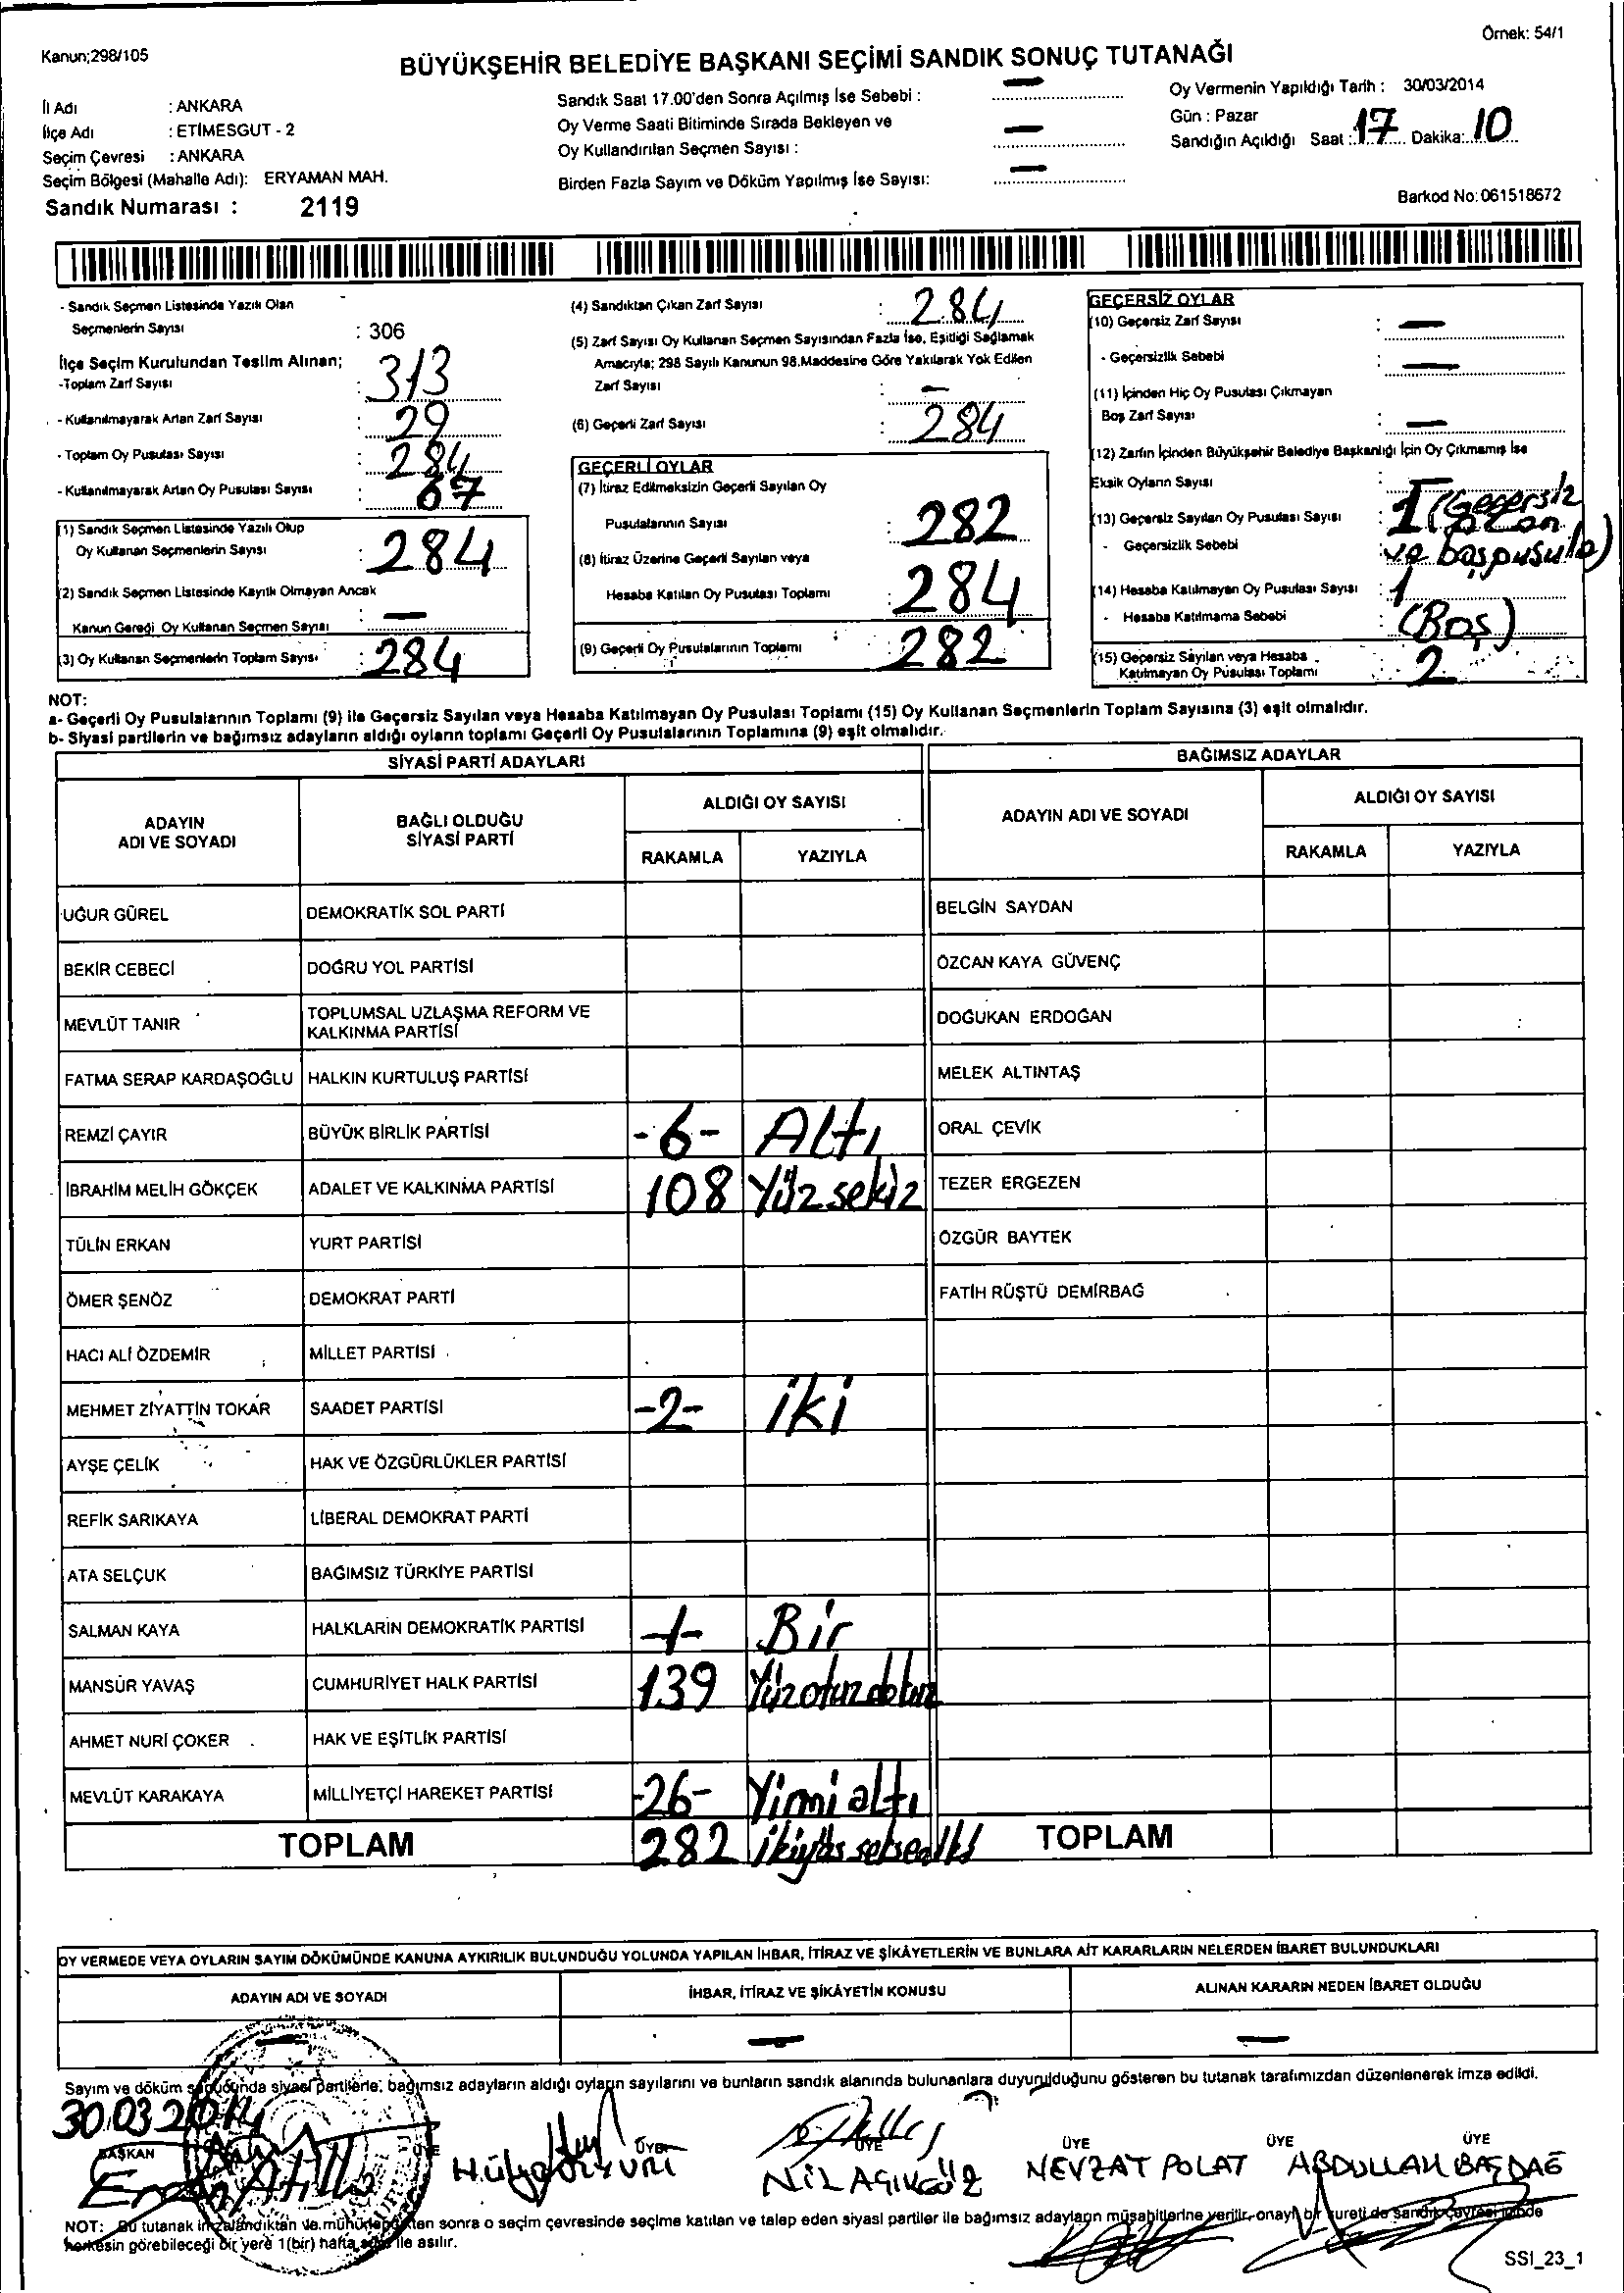 Örnek: 54/1
Kanun;298/105
BÜYÜKŞEHİR BELEDİYE BAŞKANI SEÇİMİ SANDIK SONUÇ TUTANAĞI
İl Adı : ANKARA
İlçe Adı : ETİMESGUT - 2
Seçim Çevresi : ANKARA
Seçim Bölgesi (Mahalle Adı): ERYAMAN MAH.
Sandık Numarası : 2119
Sandık Saat 17.00'den Sonra Açılmış İse Sebebi : —
Oy Verme Saati Bitiminde Sırada Bekleyen ve
Oy Kullandırılan Seçmen Sayısı : —
Birden Fazla Sayım ve Döküm Yapılmış İse Sayısı: —
Oy Vermenin Yapıldığı Tarih : 30/03/2014
Gün : Pazar
Sandığın Açıldığı Saat : 17 Dakika: 10
Barkod No: 061518672
- Sandık Seçmen Listesinde Yazılı Olan
Seçmenlerin Sayısı : 306
İlçe Seçim Kurulundan Teslim Alınan;
-Toplam Zarf Sayısı : 313
- Kullanılmayarak Artan Zarf Sayısı : 29
- Toplam Oy Pusulası Sayısı : 284
- Kullanılmayarak Artan Oy Pusulası Sayısı : 67
(1) Sandık Seçmen Listesinde Yazılı Olup
Oy Kullanan Seçmenlerin Sayısı : 284
(2) Sandık Seçmen Listesinde Kayıtlı Olmayan Ancak
Kanun Gereği Oy Kullanan Seçmen Sayısı : —
(3) Oy Kullanan Seçmenlerin Toplam Sayısı : 284
(4) Sandıktan Çıkan Zarf Sayısı : 284
(5) Zarf Sayısı Oy Kullanan Seçmen Sayısından Fazla İse, Eşitliği Sağlamak
Amacıyla; 298 Sayılı Kanunun 98.Maddesine Göre Yakılarak Yok Edilen
Zarf Sayısı : —
(6) Geçerli Zarf Sayısı : 284
GEÇERLİ OYLAR
(7) İtiraz Edilmeksizin Geçerli Sayılan Oy
Pusulalarının Sayısı : 282
(8) İtiraz Üzerine Geçerli Sayılan veya
Hesaba Katılan Oy Pusulası Toplamı : 284
(9) Geçerli Oy Pusulalarının Toplamı : 282
GEÇERSİZ OYLAR
(10) Geçersiz Zarf Sayısı : —
- Geçersizlik Sebebi : —
(11) İçinden Hiç Oy Pusulası Çıkmayan
Boş Zarf Sayısı : —
(12) Zarfın İçinden Büyükşehir Belediye Başkanlığı İçin Oy Çıkmamış İse
Eksik Oyların Sayısı :
(13) Geçersiz Sayılan Oy Pusulası Sayısı : 1 (Geçersiz
- Geçersizlik Sebebi : ve boş pusula)
(14) Hesaba Katılmayan Oy Pusulası Sayısı : 1
- Hesaba Katılmama Sebebi : (Boş)
(15) Geçersiz Sayılan veya Hesaba
Katılmayan Oy Pusulası Toplamı : 2
NOT:
a- Geçerli Oy Pusulalarının Toplamı (9) ile Geçersiz Sayılan veya Hesaba Katılmayan Oy Pusulası Toplamı (15) Oy Kullanan Seçmenlerin Toplam Sayısına (3) eşit olmalıdır.
b- Siyasi partilerin ve bağımsız adayların aldığı oyların toplamı Geçerli Oy Pusulalarının Toplamına (9) eşit olmalıdır.
SİYASİ PARTİ ADAYLARI BAĞIMSIZ ADAYLAR
ADAYIN ADI VE SOYADI BAĞLI OLDUĞU SİYASİ PARTİ ALDIĞI OY SAYISI ADAYIN ADI VE SOYADI ALDIĞI OY SAYISI
RAKAMLA YAZIYLA RAKAMLA YAZIYLA
UĞUR GÜREL DEMOKRATİK SOL PARTİ BELGİN SAYDAN
BEKİR CEBECİ DOĞRU YOL PARTİSİ ÖZCAN KAYA GÜVENÇ
MEVLÜT TANIR TOPLUMSAL UZLAŞMA REFORM VE KALKINMA PARTİSİ DOĞUKAN ERDOĞAN
FATMA SERAP KARDAŞOĞLU HALKIN KURTULUŞ PARTİSİ MELEK ALTINTAŞ
REMZİ ÇAYIR BÜYÜK BİRLİK PARTİSİ -6- Altı ORAL ÇEVİK
İBRAHİM MELİH GÖKÇEK ADALET VE KALKINMA PARTİSİ 108 Yüzsekiz TEZER ERGEZEN
TÜLİN ERKAN YURT PARTİSİ ÖZGÜR BAYTEK
ÖMER ŞENÖZ DEMOKRAT PARTİ FATİH RÜŞTÜ DEMİRBAĞ
HACI ALİ ÖZDEMİR MİLLET PARTİSİ
MEHMET ZİYATTİN TOKAR SAADET PARTİSİ -2- iki
AYŞE ÇELİK HAK VE ÖZGÜRLÜKLER PARTİSİ
REFİK SARIKAYA LİBERAL DEMOKRAT PARTİ
ATA SELÇUK BAĞIMSIZ TÜRKİYE PARTİSİ
SALMAN KAYA HALKLARIN DEMOKRATİK PARTİSİ -1- Bir
MANSUR YAVAŞ CUMHURİYET HALK PARTİSİ 139 Yüzotuzdokuz
AHMET NURİ ÇOKER HAK VE EŞİTLİK PARTİSİ
MEVLÜT KARAKAYA MİLLİYETÇİ HAREKET PARTİSİ -26- Yimi altı
TOPLAM 282 ikiyüz seksen iki TOPLAM
OY VERMEDE VEYA OYLARIN SAYIM DÖKÜMÜNDE KANUNA AYKIRILIK BULUNDUĞU YOLUNDA YAPILAN İHBAR, İTİRAZ VE ŞİKÂYETLERİN VE BUNLARA AİT KARARLARIN NELERDEN İBARET BULUNDUKLARI
ADAYIN ADI VE SOYADI İHBAR, İTİRAZ VE ŞİKÂYETİN KONUSU ALINAN KARARIN NEDEN İBARET OLDUĞU
— — —
Sayım ve döküm sonucunda siyasi partilerle, bağımsız adayların aldığı oyların sayılarını ve bunların sandık alanında bulunanlara duyurulduğunu gösteren bu tutanak tarafımızdan düzenlenerek imza edildi.
30.03.2014
BAŞKAN ÜYE ÜYE ÜYE ÜYE ÜYE ÜYE
NİL AÇIKGÖZ NEVZAT POLAT ABDULLAH BAŞDAĞ
NOT: Bu tutanak imzalandıktan ve mühürlendikten sonra o seçim çevresinde seçime katılan ve talep eden siyasi partiler ile bağımsız adayların müşahitlerine verilir, onaylı bir sureti de sandık çevresi içinde
herkesin görebileceği bir yere 1(bir) hafta süre ile asılır.
SSI_23_1